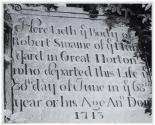 Here Lieth yᵉ Body of
Robert Swaine of
in Great Horton
who departed this Life
day of June in yᵉ 63
year of his Age An° Dom
1713